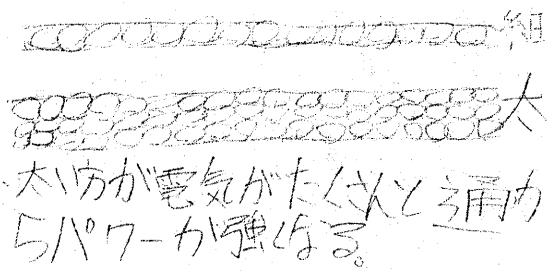 細
太
太い方が電気がたくさんと通か
らパワーが強くなる。